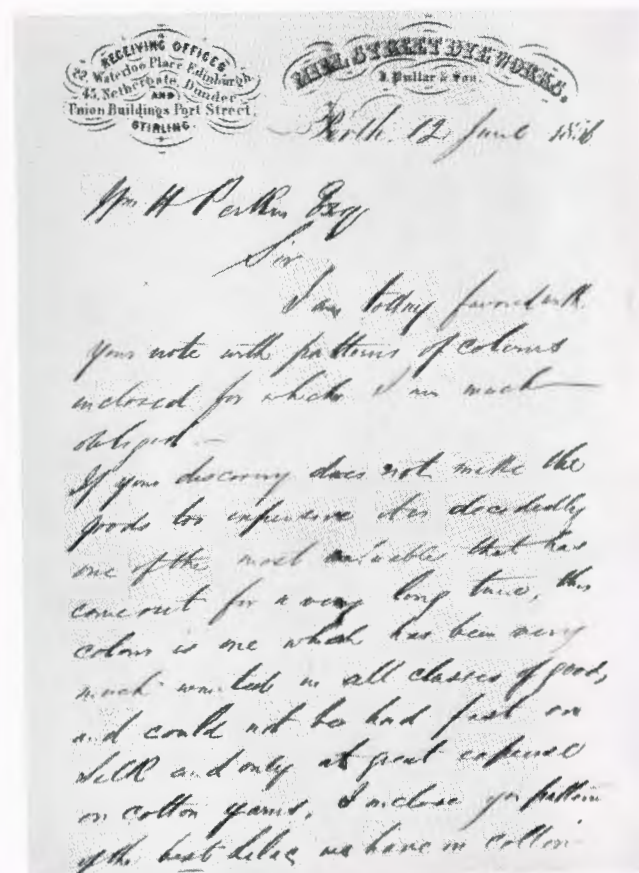 RECEIVING OFFICES
22, Waterloo Place Edinburgh
45, Nethergate, Dundee
AND
Union Buildings Port Street
STIRLING.
MILL STREET DYE WORKS.
J. Pullar & Son.
Perth. 12 June 1856
Wm H Perkin Esq
Sir
I am today favored with
your note with patterns of colours
inclosed for which I am much
obliged —
If your discovery does not make the
goods too expensive it is decidedly
one of the most valuable that has
come out for a very long time, this
colour is one which has been very
much wanted in all classes of goods,
and could not be had fast on
Silk and only at great expense
on cotton yarns, I inclose you pattern
of the best lilac we have on cotton